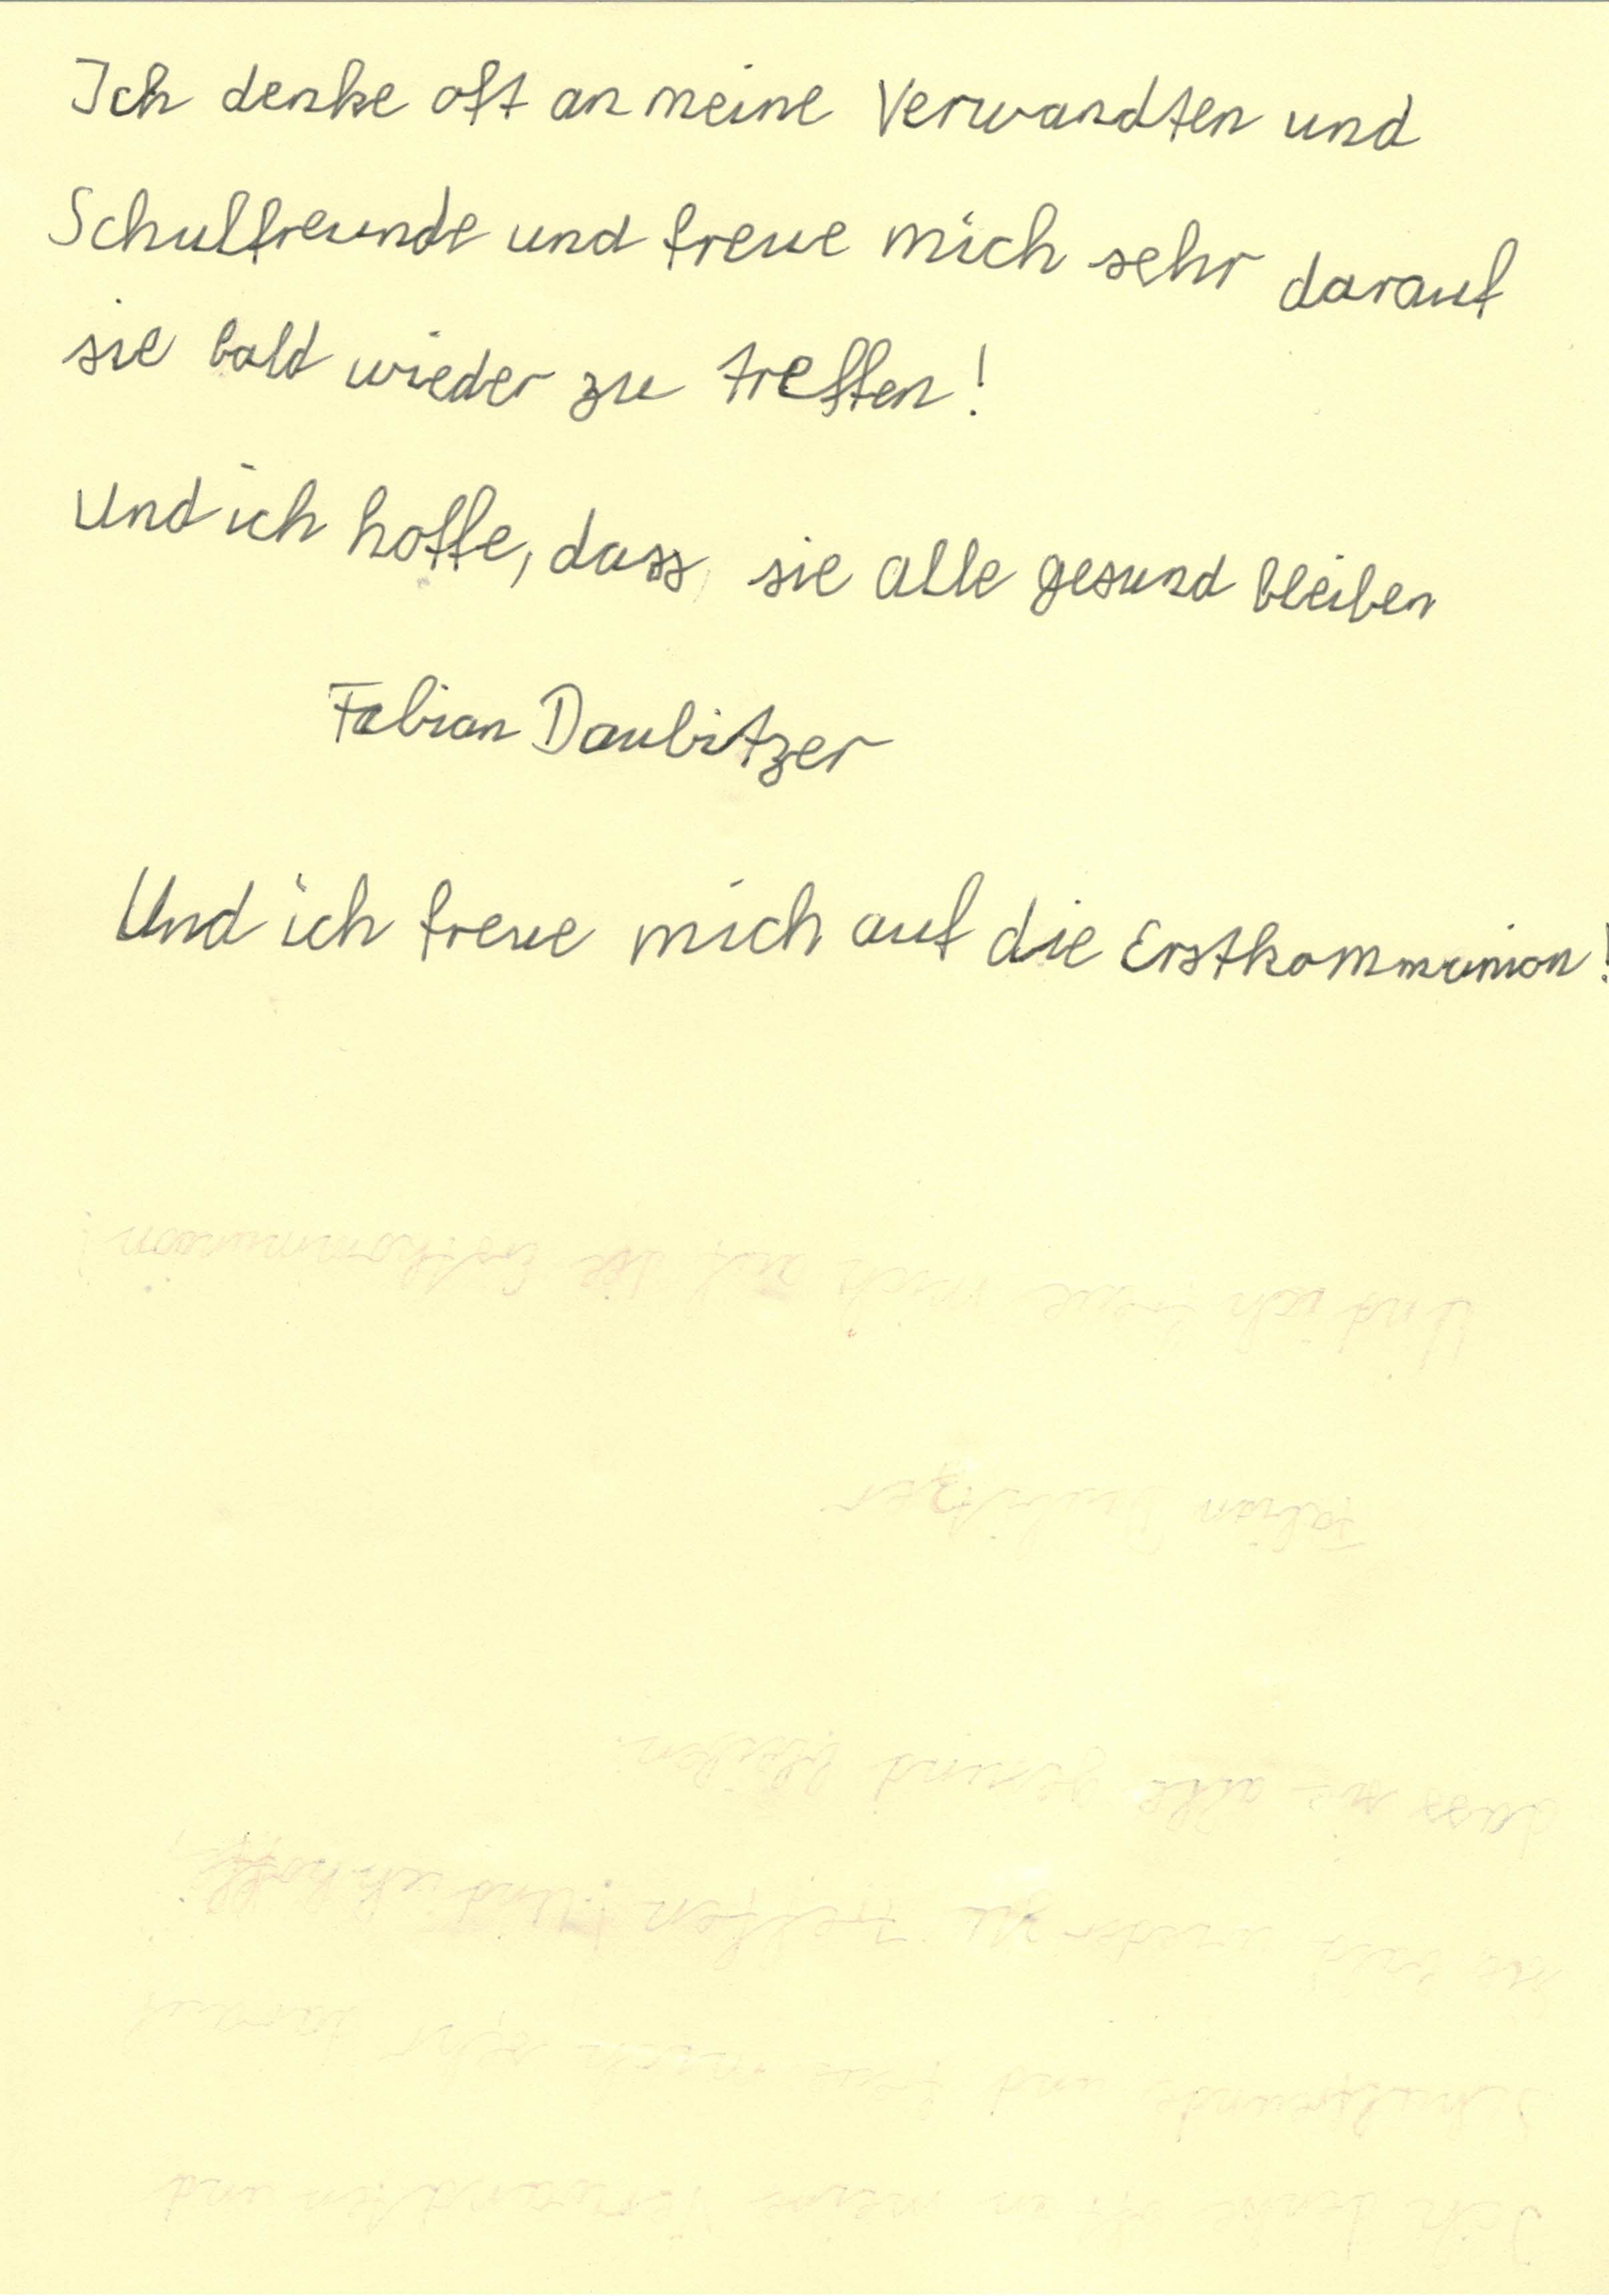 Ich denke oft an meine Verwandten und
Schulfreunde und freue mich sehr darauf
sie bald wieder zu treffen!
Und ich hoffe, dass sie alle gesund bleiben
Fabian Daubitzer
Und ich freue mich auf die Erstkommunion!